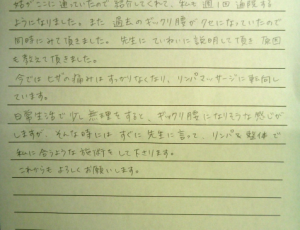 姑がここに通っていたので紹介してくれて、私も週1回通院する
ようになりました。また過去のギックリ腰がクセになっていたので
同時にみて頂きました。先生にていねいに説明して頂き原因
も教えて頂きました。
今ではヒザの痛みはすっかりなくなり、リンパマッサージに転向し
ています。
日常生活で少し無理をすると、ギックリ腰になりそうな感じが
しますが、そんな時にはすぐに先生に言って、リンパと整体で
私に合うような施術をして下さります。
これからもよろしくお願いします。